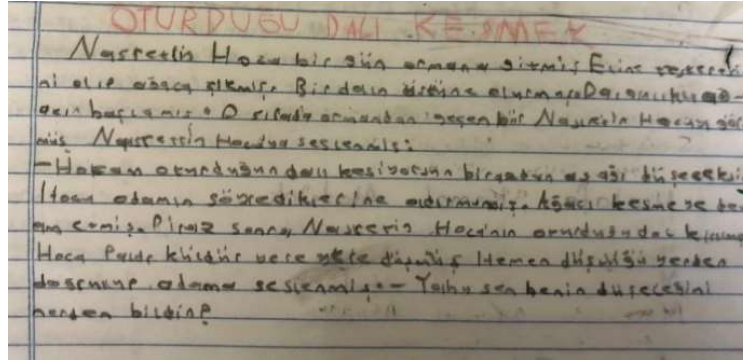 OTURDUĞU DALI KESMEK
Nasrettin Hoca bir gün ormana gitmiş Eline
ni alıp ağaca çıkmış. Bir dalın üstüne oturmaş
başlamış. O sırada ormandan geçen bir Nasrettin Hocayı gör
müş Nasrettin Hocaya seslenmiş:
-Hocam oturduğun dalı kesiyorsun birazdan aşağı düşeceksi
Hoca adamın söyledikerine aldırmamış. Ağacı kesmeye dev
am etmiş. Biraz sonra, Nasrettin Hoca'nın oturduğu dal kırılmış
Hoca Paldır küldür yere düşmüş Hemen düştüğü yerden
adama seslenmiş: - Yahu sen benim düşeceğini
nerden bildin?